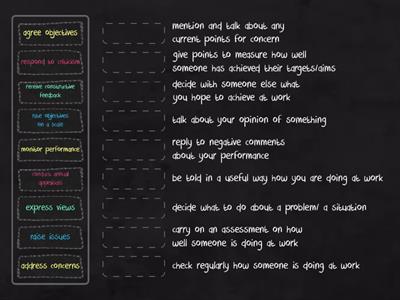 agree objectives
respond to criticism
receive constructive
feedback
rate objectives
on a scale
monitor performance
conduct annual
appraisals
express views
raise issues
address concerns
mention and talk about any
current points for concern
give points to measure how well
someone has achieved their targets/aims
decide with someone else what
you hope to achieve at work
talk about your opinion of something
reply to negative comments
about your performance
be told in a useful way how you are doing at work
decide what to do about a problem/ a situation
carry on an assessment on how
well someone is doing at work
check regularly how someone is doing at work